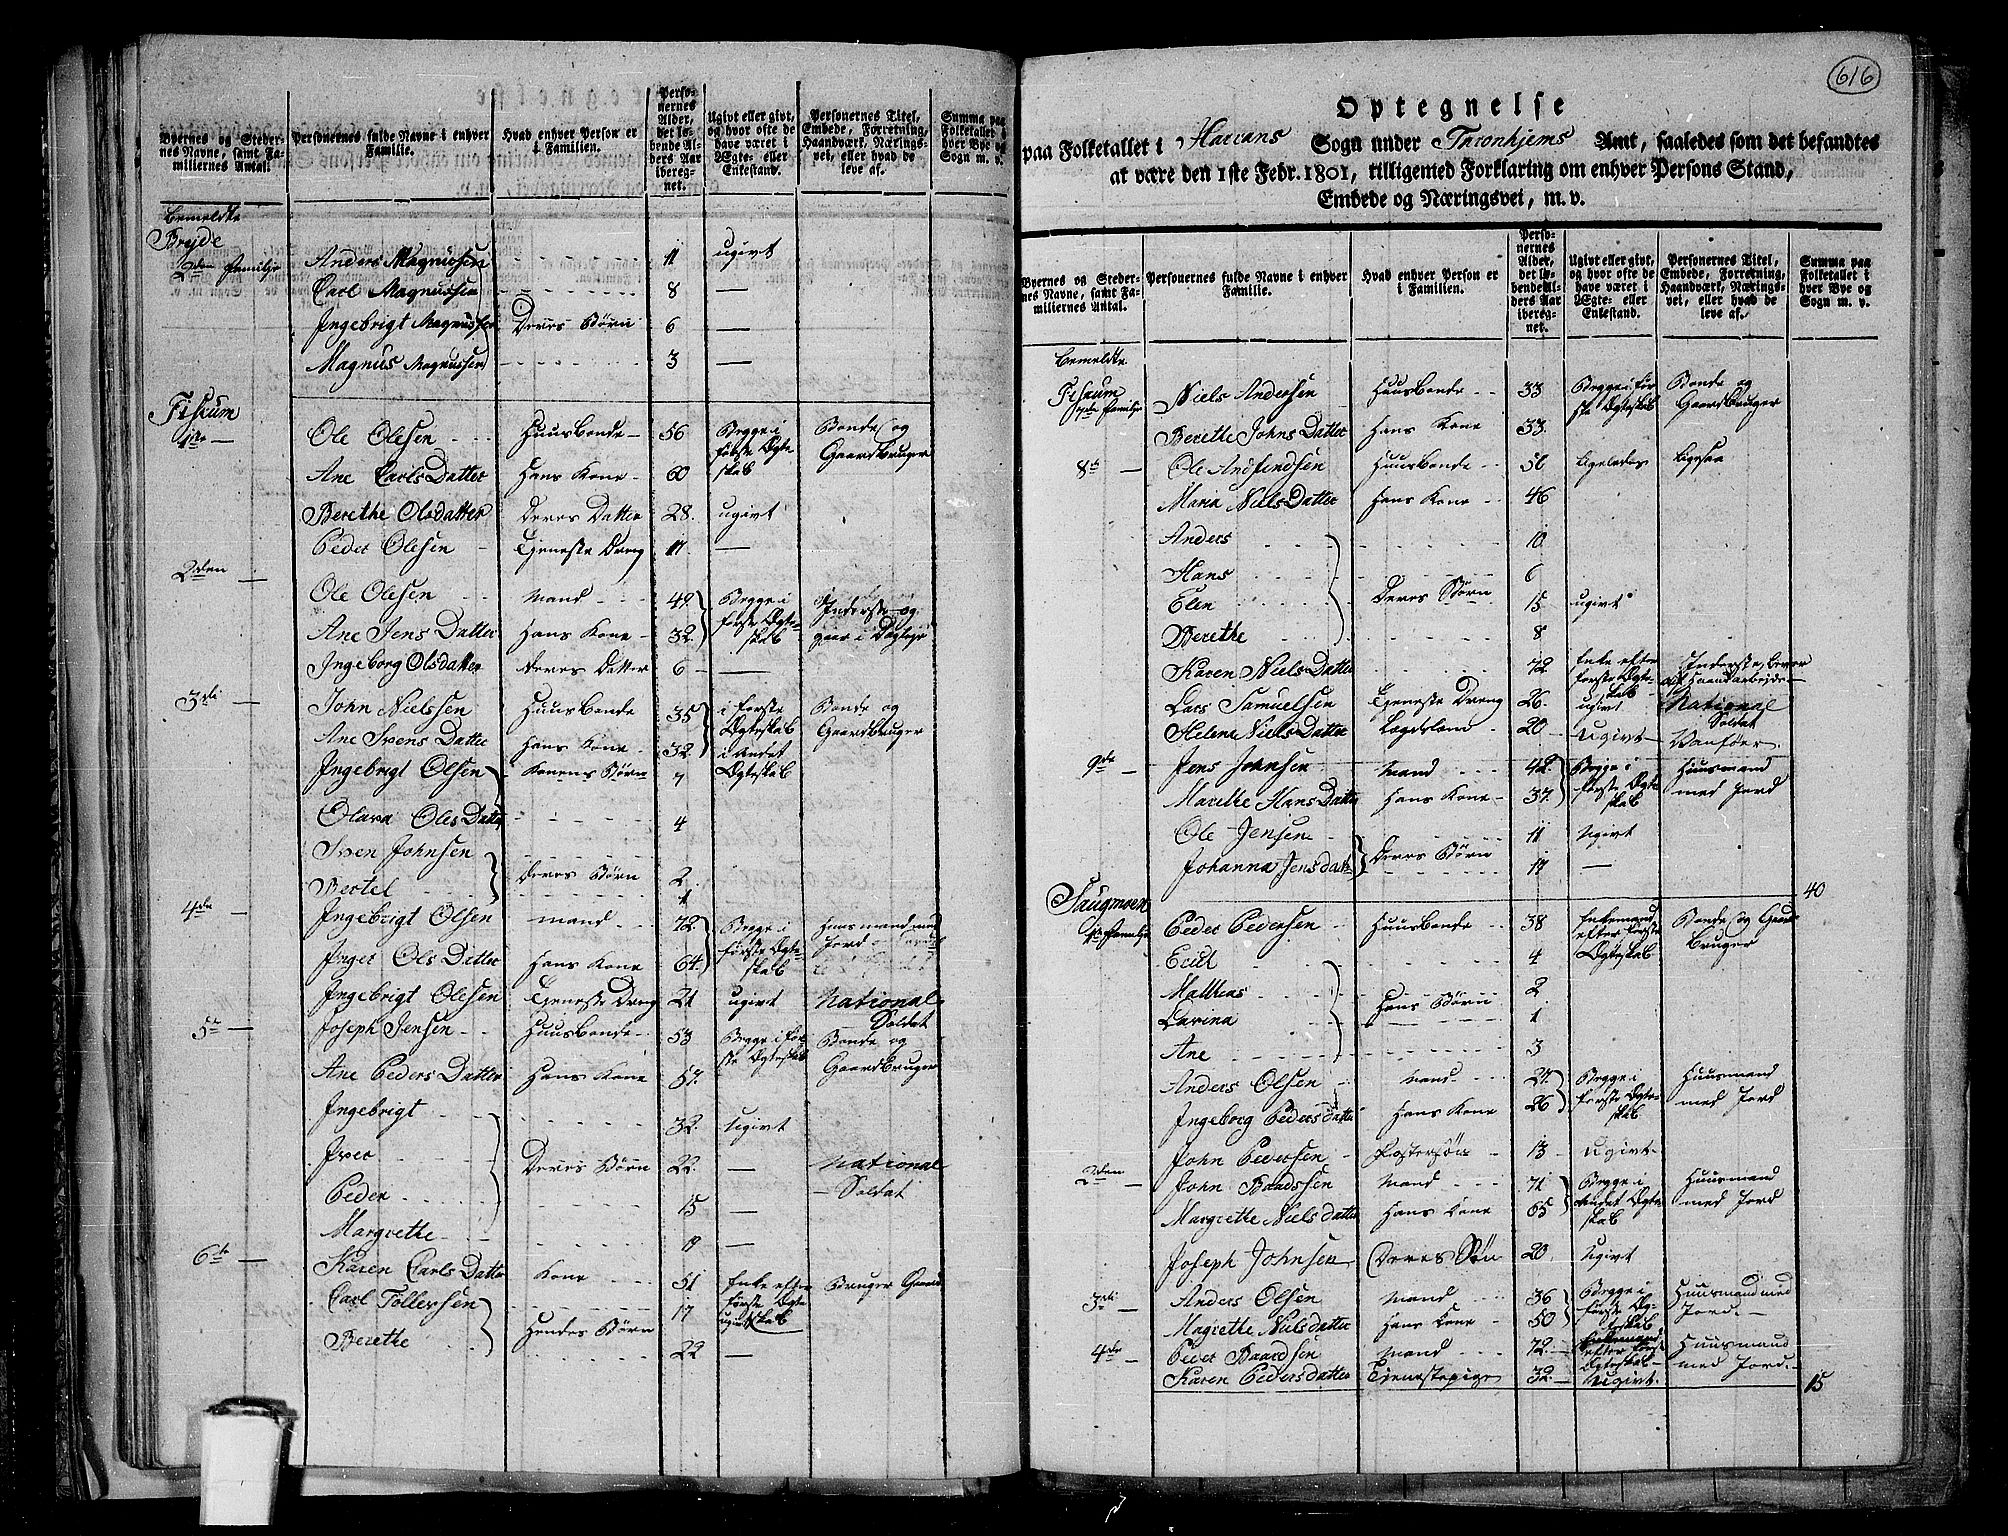 Byernes og Steder-
nes Navne, samt Fa-
miliernes Antal.
Personernes fulde Navne i enhver
Familie.
Hvad enhver Person er
i Familien.
Perso-
nernes
Alder,
det lø-
bende Al-
ders Aar
iberег-
net.
Ugivt eller givt,
og hvor ofte de
have været i
Ægte- eller
Enkestand.
Personernes Titel,
Embede, Forretning,
Haandværk, Nærings-
vei, eller hvad de
leve af.
Summa paa
Folketallet i
hver Bye og
Sogn m. v.
bemeldte
Brejde
2den Familje Anders Magnussen 11 ugivt
Carl Magnussen 8 —
Ingebrigt Magnussen Deres Børn 6 —
Magnus Magnussen 3 —
Fiskum
1ste — Ole Olesen Huusbonde 56 Begge i Bonde og
første Ægte Gaardbruger
skab
Ane Carls Datter Hans Kone 60
Berethe Olsdatter Deres Datter 28. ugivt
Peder Olesen Tjeneste Dreng 11 —
2den — Ole Olesen Mand 49. Begge i Inderste og
første Ægte- gaar i Dagleje
skab
Ane Jens Datter Hans Kone 32.
Ingeborg Olsdatter Deres Datter 6 —
3die — John Nielssen Huusbonde 35 i første Bonde og
Ægteskab Gaardbruger
Ane Svens Datter Hans Kone 32. i Andet
Ægteskab
Ingebrigt Olsen Konens Børn 7
Olava Oles Datter 4
Sven Johnsen Deres Børn 2
Bertel 1
4de — Ingebrigt Olsen Mand 72. Begge i Huusmand med
første Ægte- Jord
skab
Inger Ols Datter Hans Kone 64.
Ingebrigt Olesen Tjeneste Dreng 21 ugivt National
Soldat
5te — Joseph Jensen Huusbonde 53 Begge i før Bonde og
ste Ægteskab Gaardbruger
Ane Peders Datter Hans Kone 57.
Ingebrigt 32. ugivt
Iver Deres Børn 22. — National
Soldat
Peder 15 —
Margrethe 19 —
6te — Karen Carls Datter Kone 51 Enke efter Bruger Gaard
første Ægte
skab
Carl Tollersen Hendes Børn 17 ugivt
Berethe 22 —
616
Optegnelse
paa Folketallet i Harrans Sogn under Thronhjems Amt, saaledes som det befandtes
at være den 1ste Febr. 1801, tilligemed Forklaring om enhver Persons Stand,
Embede og Næringsvei, m. v.
Byernes og Steder-
nes Navne, samt Fa-
miliernes Antal.
Personernes fulde Navne i enhver
Familie.
Hvad enhver Person er
i Familien.
Perso-
nernes
Alder,
det lø-
bende Al-
ders Aar
iberег-
net.
Ugivt eller givt,
og hvor ofte de
have været i
Ægte- eller
Enkestand.
Personernes Titel,
Embede, Forretning,
Haandværk, Nærings-
vei, eller hvad de
leve af.
Summa paa
Folketallet i
hver Bye og
Sogn m. v.
bemeldte
Fiskum Niels Andersen Huusbonde 33 Begge i før Bonde og
7de Familje ste Ægteskab Gaardbruger
Berethe Johns Datter Hans Kone 33.
8de — Ole Andfindsen Huusbonde 50 Ligeledes Ligesaa
Maria Niels Datter Hans Kone 46
Anders 10
Hans 6
Elen Deres Børn 15 ugivt
Berethe 8
Karen Niels Datter 72 Enke efter Inderste, lever
første Ægte- af Haandarbejde
skab
Lars Samuelsen Tjeneste Dreng 26. ugivt National
Soldat
Helene Niels Datter Lægdslem 20 Ugivt Vanføer.
9de — Jens Johnsen Mand 42. Begge i Huusmand
første Ægte med Jord
skab
Marethe Hans Datter Hans Kone 37.
Ole Jensen Deres Børn 11 Ugivt
Johanna Jensdatter 17 —
40
Saugmoen
1ste Familje Peder Pedersen Huusbonde 38 Enkemand Bonde og Gaard
efter første Bruger
Ægteskab
Erik 4
Matthias Hans Børn 2
Lavina 1
Ane 3
Anders Olsen Mand 27. Begge i Huusmand
første Ægte med Jord
skab
Ingeborg Pedersdatter Hans Kone 26
John Pedersen Fostersøn 13 Ugivt
2den — John Baadssen Mand 71 Begge i Huusmand
Andet Ægte med Jord
skab
Margrethe Nielsdatter Hans Kone 65
Joseph Johnsen Deres Søn 20. Ugivt
3die — Anders Olsen Mand 36 Begge i Huusmand med
første Æg- Jord
teskab
Magrethe Nielsdatter Hans Kone 50
4de — Peder Baardsen Mand 72. Enkemand Huusmand
efter første med Jord.
Ægteskab
Karen Pedersdatter Tjenestepige 32. Ugivt.
15